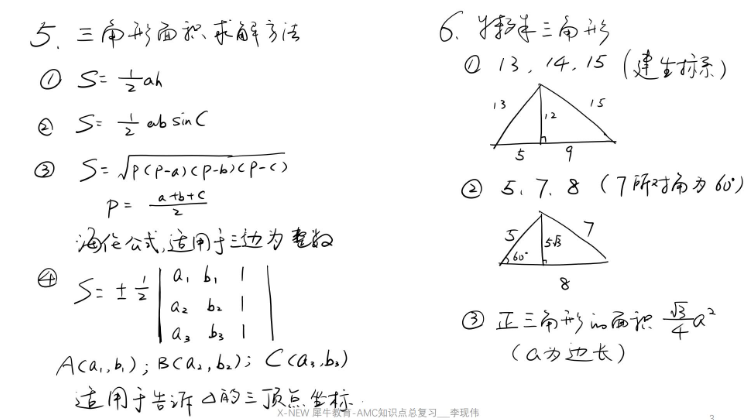 5. 三角形面积求解方法
① S= 1/2 ah
② S= 1/2 ab sinC
③ S=√P(P-a)(P-b)(P-c)
P= a+b+c/2
海伦公式,适用于三边为整数
④ S= ± 1/2 | a₁ b₁ 1
a₂ b₂ 1
a₃ b₃ 1 |
A(a₁,b₁); B(a₂,b₂); C(a₃,b₃)
适用于告诉△的三顶点坐标.
6. 特殊三角形
① 13, 14, 15 (建坐标系)
13 12 15
5 9
② 5, 7, 8 (7所对角为60°)
5 5√3 7
60°
8
③ 正三角形的面积 √3/4 a²
(a为边长)
X-NEW 犀牛教育-AMC知识点总复习__李现伟
3